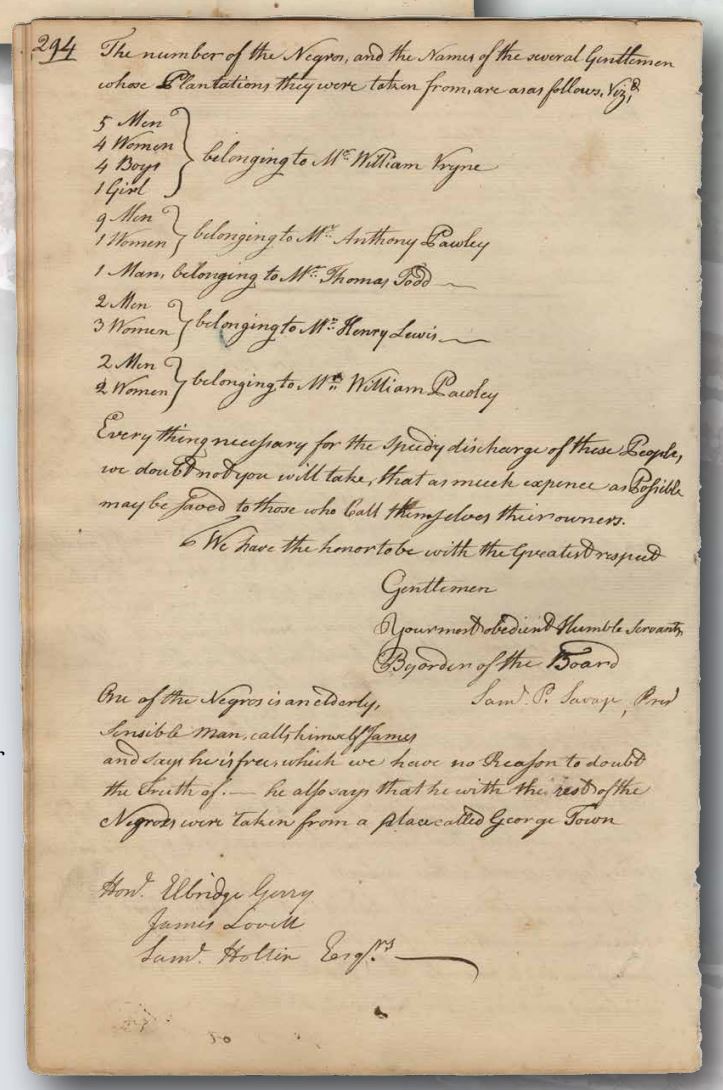 294
The number of the Negros, and the Names of the several Gentlemen
whose Plantations they were taken from, are as as follows. Vizt
5 Men
4 Women
4 Boys
1 Girl
belonging to Mr. William Vryne
9 Men
1 Women
belonging to Mr. Anthony Pawley
1 Man, belonging to Mr. Thomas Todd
2 Men
3 Women
belonging to Mr. Henry Lewis
2 Men
2 Women
belonging to Mr. William Pawley
Every thing necessary for the speedy discharge of these People,
we doubt not you will take, that as much expence as Possible
may be saved to those who Call themselves their owners.
We have the honor to be with the Greatest respect
Gentlemen
Your most obedient Humble Servants,
By order of the Board
Saml. P. Savage, Prest
One of the Negros is an elderly,
Sensible Man, calls himself James
and says he is free, which we have no Reason to doubt
the truth of. — he also says that he with the rest of the
Negroes were taken from a place called George Town
Hond. Elbridge Gerry
James Lovell
Saml. Holtin Esqrs